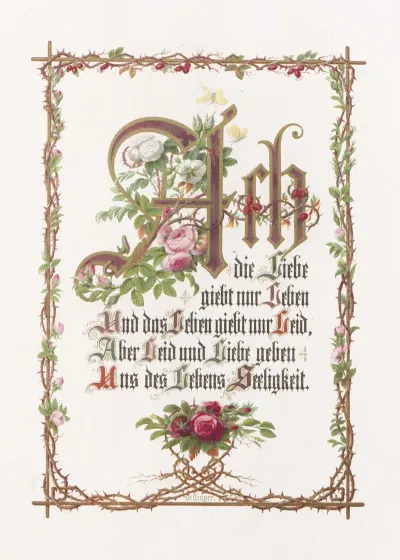 Ach
die Liebe
giebt nur Leben
Und das Leben giebt nur Leid,
Aber Leid und Liebe geben
Uns des Lebens Seeligkeit.